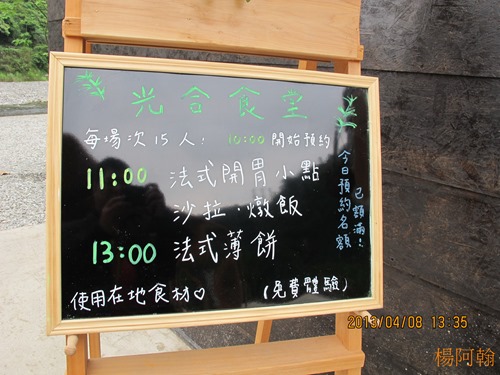 光合食堂
每場次15人: 10:00開始預約
11:00 法式開胃小點
沙拉.燉飯
13:00 法式薄餅
使用在地食材♡ (免費體驗)
今日預約名額
已額滿!
2013/04/08 13:35
楊阿翰